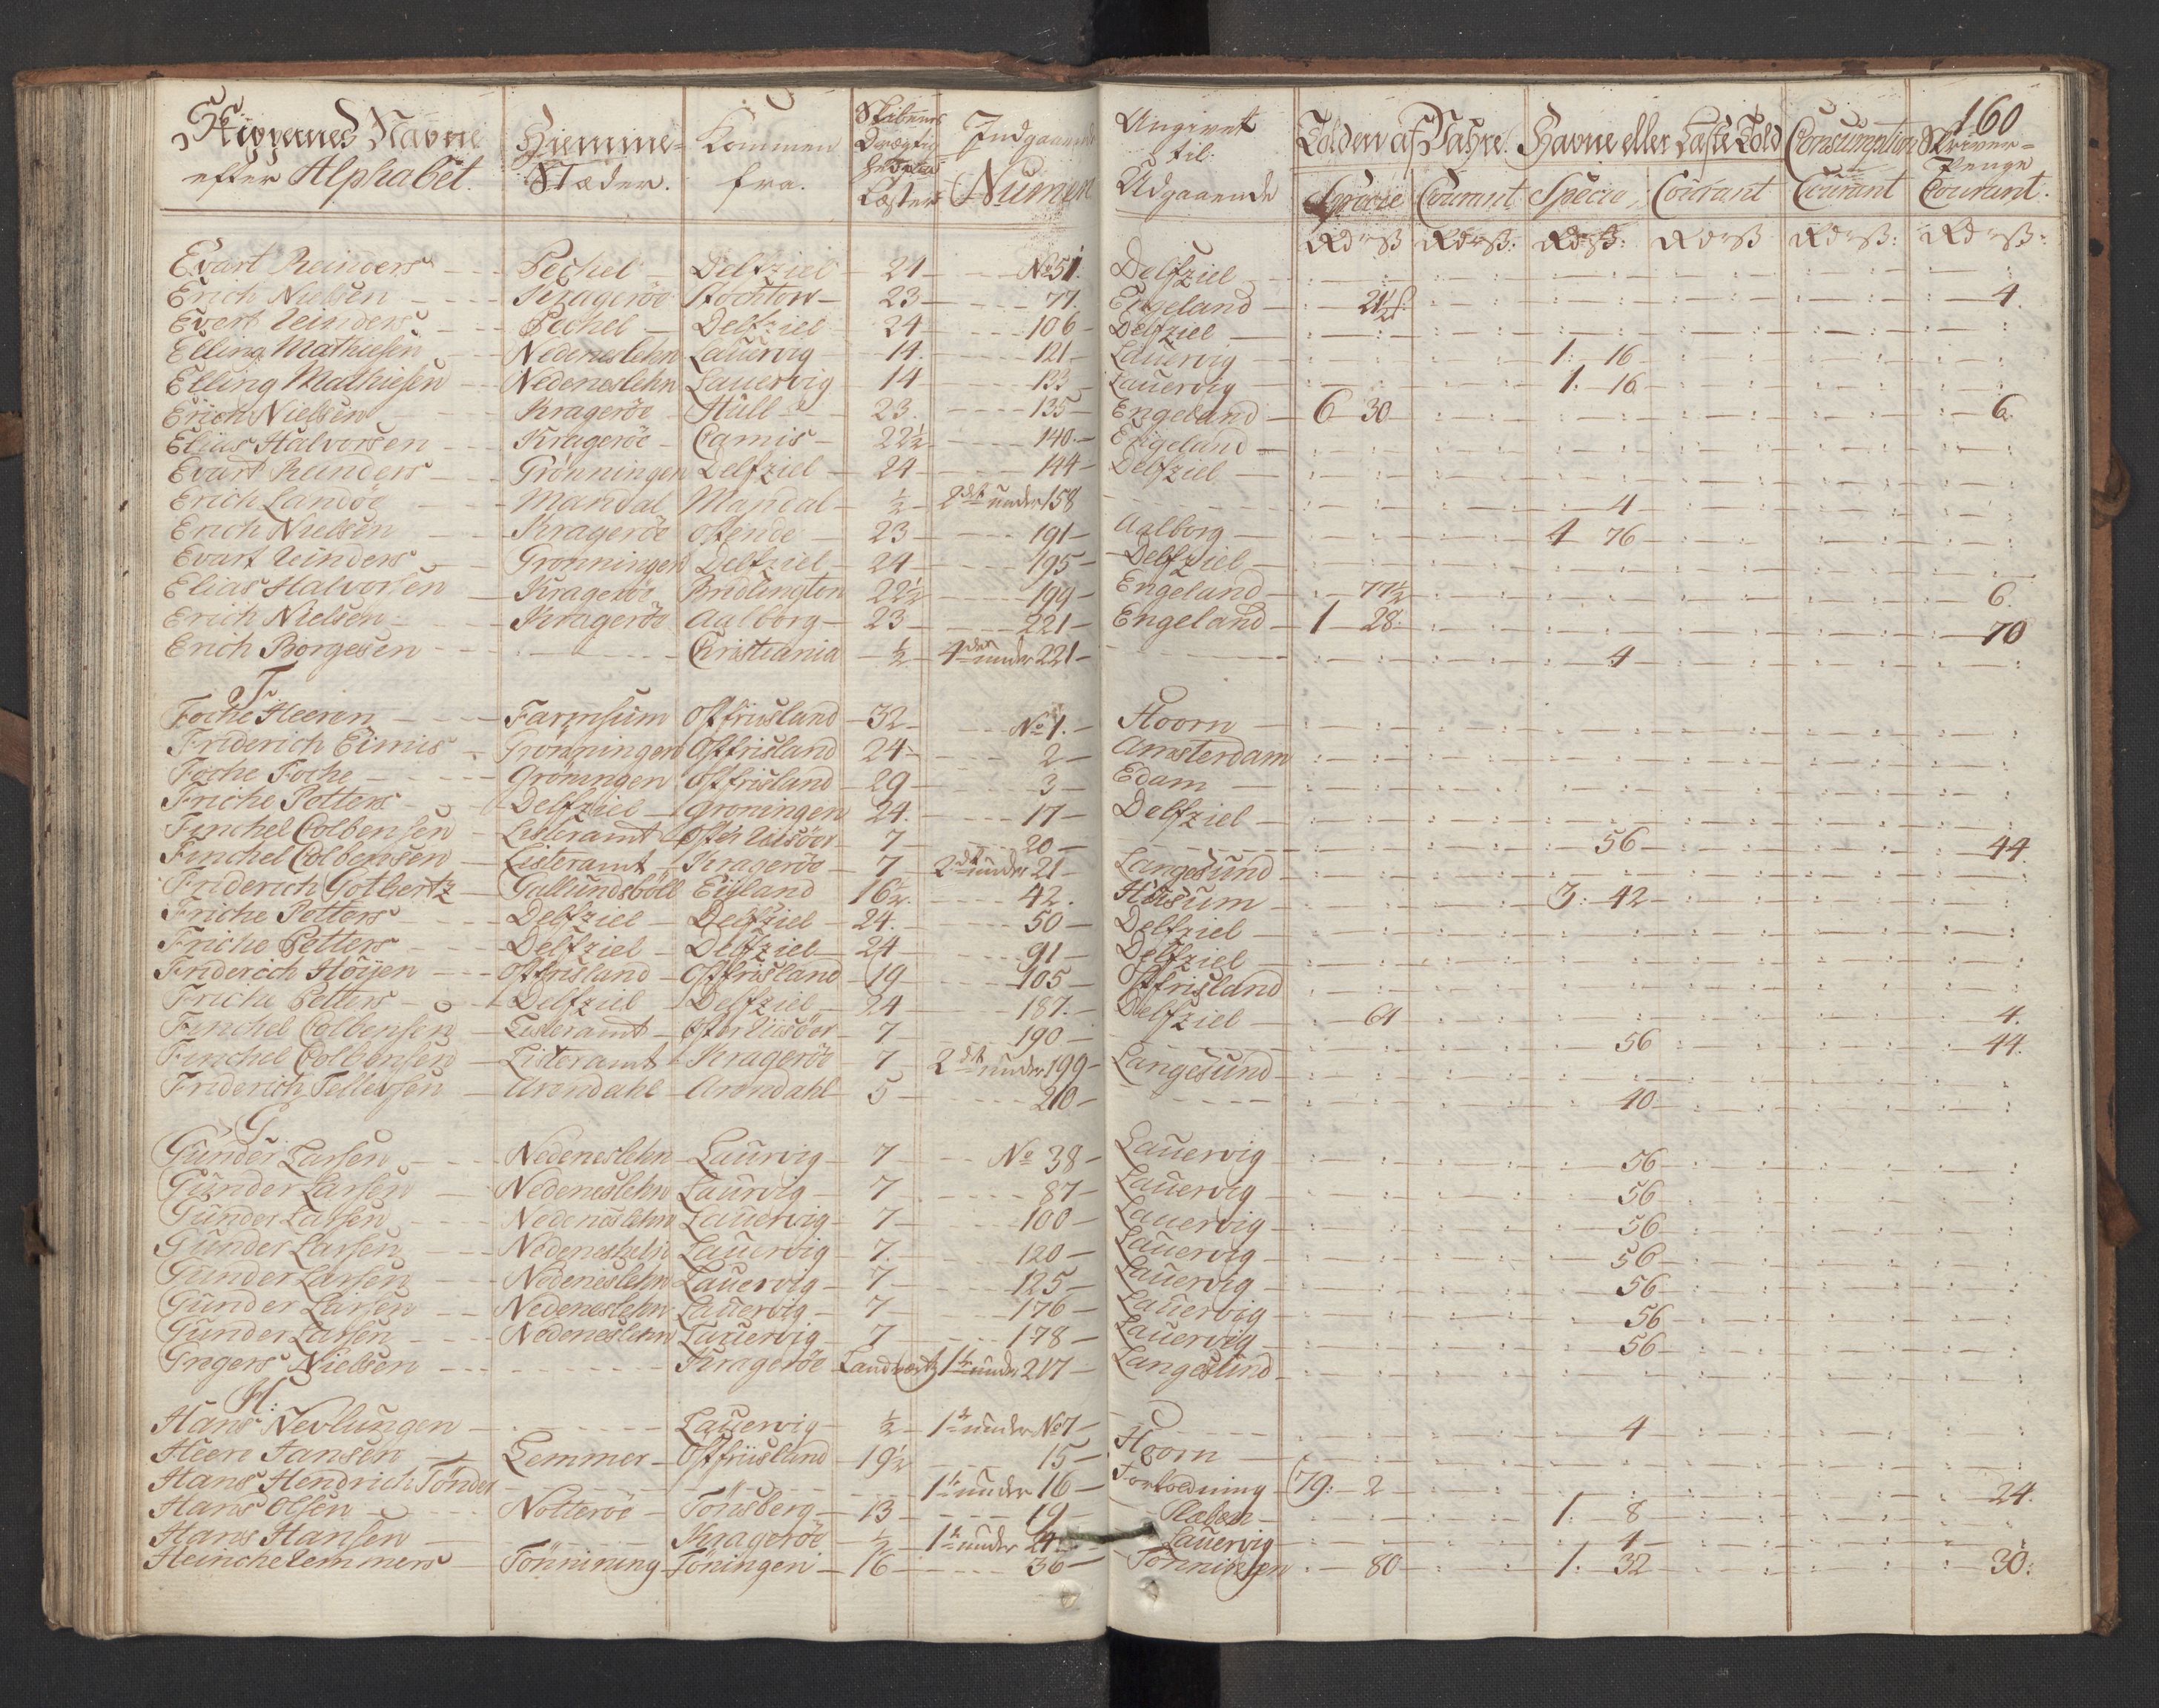 160
Skippernes Navne efter Alphabet. | Hiemme-Stæder. | Kommen fra. | Skibenes Drægtig hed Læster | Indgaaende Numer | Angivet til Udgaaende | Tolden af Vahre. Specie Courant | Havne eller Læste Told Specie Courant | Consumption Courant | Skriver-Penge Courant.
Evart Reinders | Pechel | Delfziel | 24 | No 51. | Delfziel
Erich Nielsen | Krageröe | Stochton | 23 | 77. | Engeland | 21½ | 4.
Evert Reinders | Pechel | Delfziel | 24 | 106 | Delfziel
Elling Mathiesen | Nedeneslehn | Lauervig | 14. | 121 | Lauervig | 1: 16
Elling Mathiesen | Nedeneslehn | Lauervig | 14 | 133 | Lauervig | 1: 16
Erich Nielsen | Krageröe | Hüll | 23. | 135 | Engeland | 6 30 | 6.
Elias Halvorsen | Krageröe | Camis | 22½ | 140. | Engeland
Evart Reinders | Grönningen | Delfziel | 24 | 144 | Delfziel
Erich Landöe | Mandal | Mandal | ½ | 2det under 158 | 4
Erich Nielsen | Krageröe | Ostende | 23 | 191 | Aalborg | 4 76
Evart Reinders | Gronningen | Delfziel | 24 | 195 | Delfziel
Elias Halvorsen | Kragerøe | Bridlington | 22½ | 199 | Engeland | 77½ | 6.
Erich Nielsen | Krageröe | Aalborg | 23 | 221 | Engeland | 1 28. | 70
Erich Borgesen | Christiania | ½ | 4den under 221 | 4
F.
Foche Heeren | Farmsum | Ostfriisland | 32 | No 1. | Hoorn
Friderich Eimis | Gronningen | Ostfrisland | 24 | 2 | Amsterdam
Foche Foche | Gröningen | Ostfrisland | 29 | 3 | Edam
Friche Petters | Delfziel | Groningen | 24. | 17 | Delfziel
Finchel Colbensen | Listeramt | Oster Riisöer | 7 | 20 | 56 | 44.
Finchel Colbensen | Listeramt | Kragerøe | 7 | 2det under 21 | Langesund
Friderich Gotbertz | Gallundsböll | Eijland | 16½. | 42. | Husum | 3: 42
Friche Petters | Delfziel | Delfziel | 24. | 50 | Delfziel
Friche Petters | Delfziel | Delfziel | 24 | 91 | Delfziel
Friderich Höijen | Ostfrisland | Ostfrisland | 19 | 105 | Ostfrisland
Friche Petters | Delfziel | Delfziel | 24 | 187. | Delfziel | 64 | 4.
Finchel Colbensen | Listeramt | Oster Riisöer | 7 | 190 | 56 | 44.
Finchel Colbensen | Listeramt | Kragerøe | 7 | 2det under 199 | Langesund
Friderich Tellevsen | Arendahl | Arendahl | 5 | 210 | 40
G
Gunder Larsen | Nedeneslehn | Laurvig | 7 | No 38 | Lauervig | 56
Gunder Larsen | Nedeneslehn | Laurvig | 7 | 87 | Lauervig | 56
Gunder Larsen | Nedeneslehn | Lauervig | 7 | 100 | Lauervig | 56
Gunder Larsen | Nedeneslehn | Lauervig | 7 | 120 | Lauervig | 56
Gunder Larsen | Nedeneslehn | Lauervig | 7 | 125 | Lauervig | 56
Gunder Larsen | Nedeneslehn | Lauervig | 7 | 176 | Lauervig | 56
Gunder Larsen | Nedeneslehn | Lauervig | 7 | 178 | Lauervig | 56
Gregers Nielsen | Kragerøe | Landvertz | 1te under 217 | Langesund
H:
Hans Nevlungen | Lauervig | ½ | 1te under No 7 | 4
Heere Jansen | Lemmer | Ostfriisland | 19½ | 15 | Hoorn
Hans Hendrich Tönder | 1te under 16 | Fortoldning | 79: 2 | 24.
Hans Olsen | Notteröe | Tönsberg | 13 | 19 | 1. 8
Hans Hansen | Kragerøe | ½ | 1te under | Lauervig | 4
Heinche Remmers | Tönninng | Töningen | 16 | 36 | Tönningen | 80 | 1. 32 | 30: